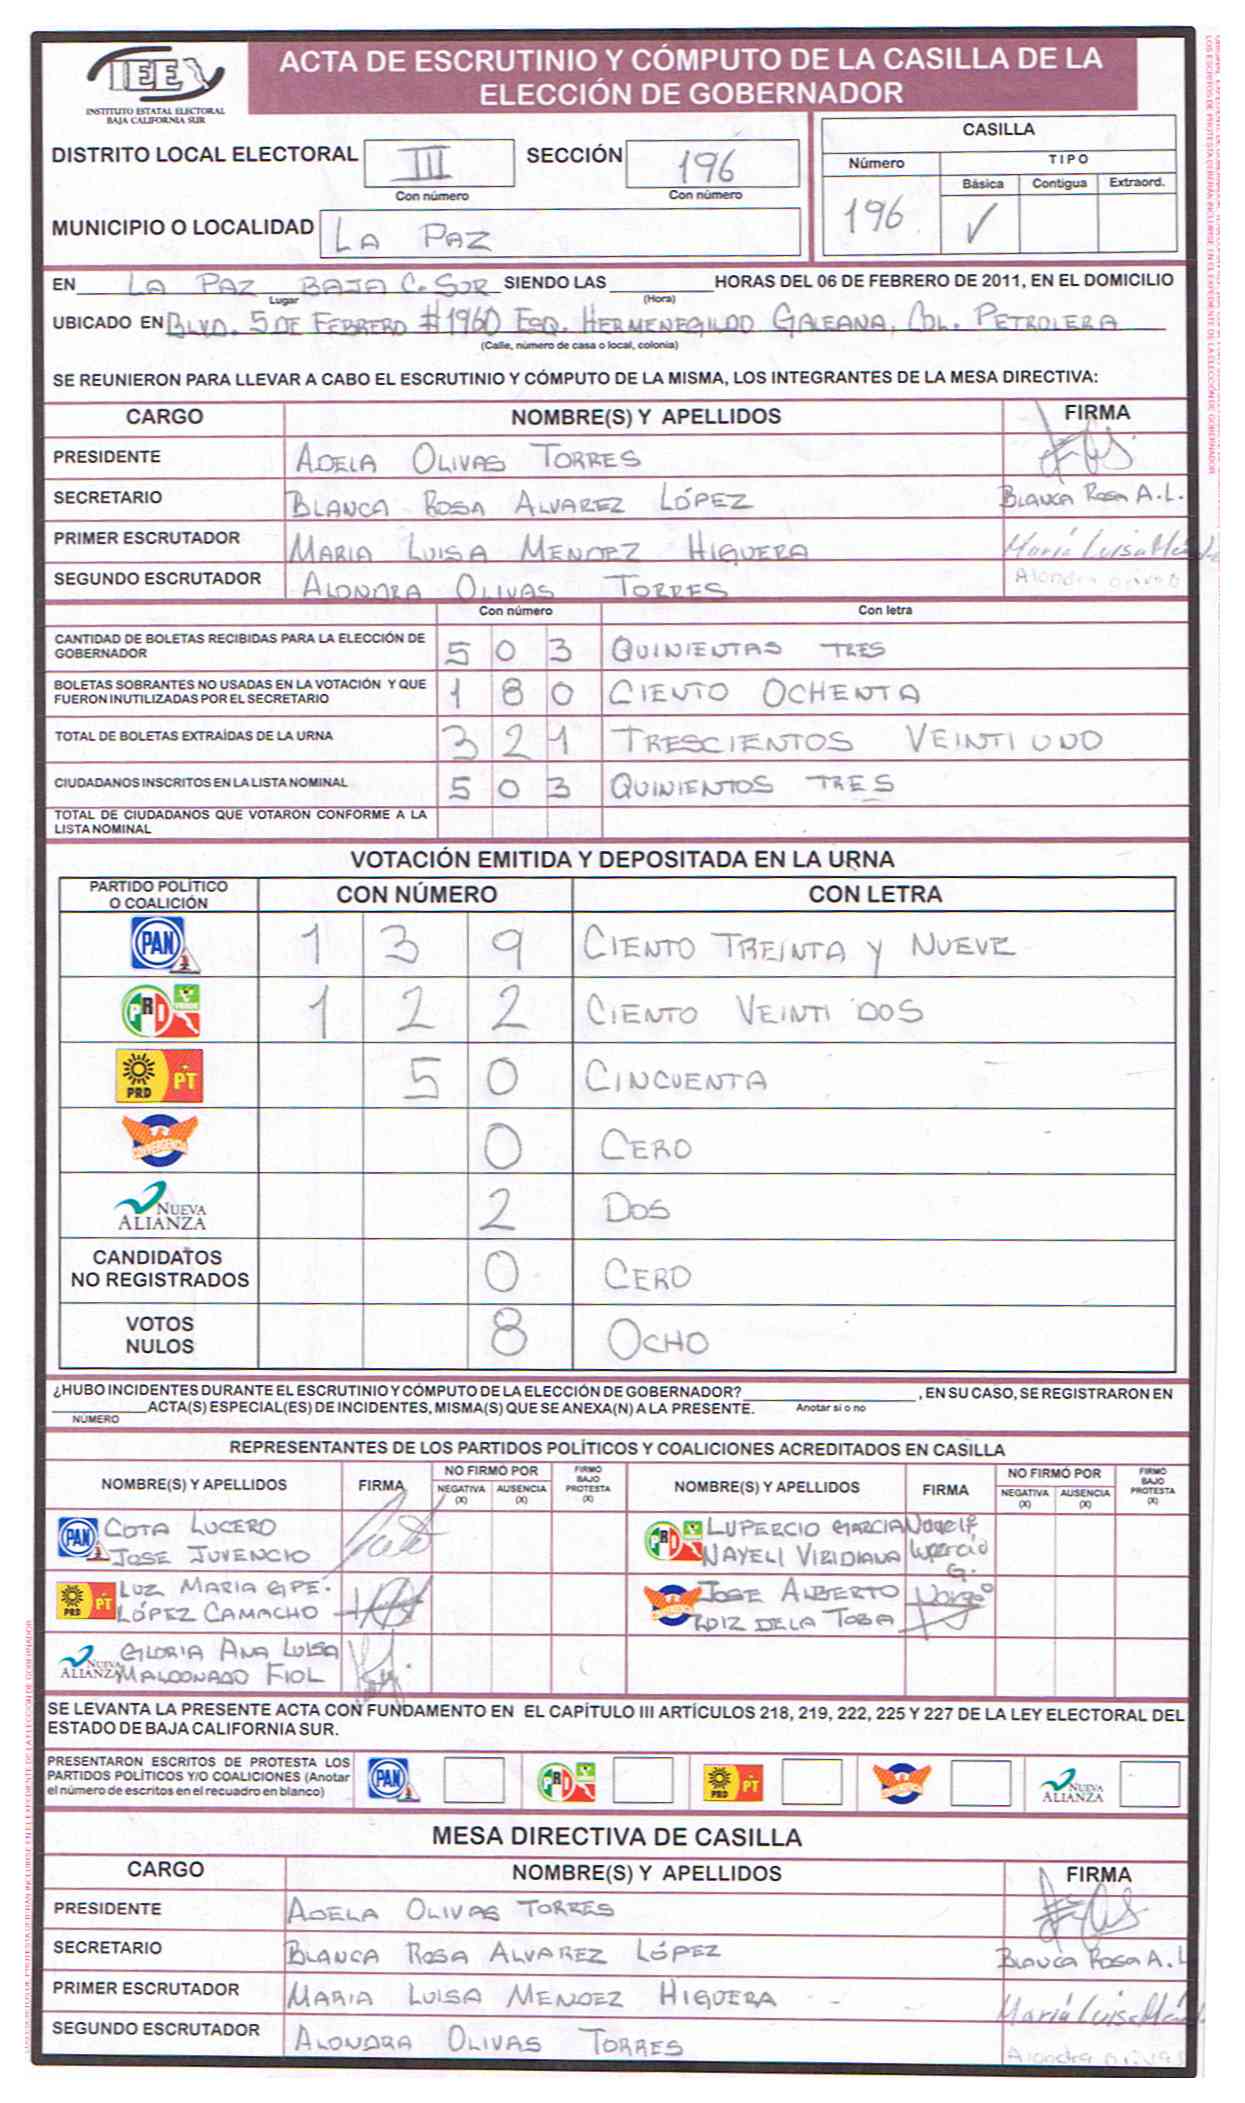 IEE
INSTITUTO ESTATAL ELECTORAL
BAJA CALIFORNIA SUR
ACTA DE ESCRUTINIO Y CÓMPUTO DE LA CASILLA DE LA
ELECCIÓN DE GOBERNADOR
DISTRITO LOCAL ELECTORAL III SECCIÓN 196
Con número Con número
MUNICIPIO O LOCALIDAD LA PAZ
CASILLA
Número TIPO
Básica Contigua Extraord.
196 ✓
EN LA PAZ BAJA C. SUR SIENDO LAS HORAS DEL 06 DE FEBRERO DE 2011, EN EL DOMICILIO
Lugar (Hora)
UBICADO EN BLVD. 5 DE FEBRERO #1960 ESQ. HERMENEGILDO GALEANA, COL. PETROLERA
(Calle, número de casa o local, colonia)
SE REUNIERON PARA LLEVAR A CABO EL ESCRUTINIO Y CÓMPUTO DE LA MISMA, LOS INTEGRANTES DE LA MESA DIRECTIVA:
CARGO NOMBRE(S) Y APELLIDOS FIRMA
PRESIDENTE ADELA OLIVAS TORRES
SECRETARIO BLANCA ROSA ALVAREZ LÓPEZ BLANCA ROSA A.L.
PRIMER ESCRUTADOR MARIA LUISA MENDEZ HIGUERA María Luisa
SEGUNDO ESCRUTADOR ALONDRA OLIVAS TORRES Alondra olivas
Con número Con letra
CANTIDAD DE BOLETAS RECIBIDAS PARA LA ELECCIÓN DE
GOBERNADOR 503 QUINIENTAS TRES
BOLETAS SOBRANTES NO USADAS EN LA VOTACIÓN Y QUE
FUERON INUTILIZADAS POR EL SECRETARIO 180 CIENTO OCHENTA
TOTAL DE BOLETAS EXTRAÍDAS DE LA URNA 321 TRESCIENTOS VEINTI UNO
CIUDADANOS INSCRITOS EN LA LISTA NOMINAL 503 QUINIENTOS TRES
TOTAL DE CIUDADANOS QUE VOTARON CONFORME A LA
LISTA NOMINAL
VOTACIÓN EMITIDA Y DEPOSITADA EN LA URNA
PARTIDO POLÍTICO
O COALICIÓN CON NÚMERO CON LETRA
PAN 1 3 9 CIENTO TREINTA Y NUEVE
PRI VERDE 1 2 2 CIENTO VEINTI DOS
PRD PT 5 0 CINCUENTA
CONVERGENCIA 0 CERO
NUEVA ALIANZA 2 DOS
CANDIDATOS
NO REGISTRADOS 0 CERO
VOTOS
NULOS 8 OCHO
¿HUBO INCIDENTES DURANTE EL ESCRUTINIO Y CÓMPUTO DE LA ELECCIÓN DE GOBERNADOR? , EN SU CASO, SE REGISTRARON EN
ACTA(S) ESPECIAL(ES) DE INCIDENTES, MISMA(S) QUE SE ANEXA(N) A LA PRESENTE. Anotar si o no
NÚMERO
REPRESENTANTES DE LOS PARTIDOS POLÍTICOS Y COALICIONES ACREDITADOS EN CASILLA
NOMBRE(S) Y APELLIDOS FIRMA NO FIRMÓ POR FIRMÓ BAJO PROTESTA (X) NOMBRE(S) Y APELLIDOS FIRMA NO FIRMÓ POR FIRMÓ BAJO PROTESTA (X)
NEGATIVA (X) AUSENCIA (X) NEGATIVA (X) AUSENCIA (X)
PAN COTA LUCERO PRI LUPERCIO GARCIA
JOSE JUVENCIO NAYELI VIRIDIANA Lupercio G.
PRD PT LUZ MARIA GPE. JOSE ALBERTO
LÓPEZ CAMACHO RUIZ DE LA TOBA
NUEVA ALIANZA GLORIA ANA LUISA
MALDONADO FIOL
SE LEVANTA LA PRESENTE ACTA CON FUNDAMENTO EN EL CAPÍTULO III ARTÍCULOS 218, 219, 222, 225 Y 227 DE LA LEY ELECTORAL DEL
ESTADO DE BAJA CALIFORNIA SUR.
PRESENTARON ESCRITOS DE PROTESTA LOS
PARTIDOS POLÍTICOS Y/O COALICIONES (Anotar
el número de escritos en el recuadro en blanco) PAN PRI PRD PT NUEVA ALIANZA
MESA DIRECTIVA DE CASILLA
CARGO NOMBRE(S) Y APELLIDOS FIRMA
PRESIDENTE ADELA OLIVAS TORRES
SECRETARIO BLANCA ROSA ALVAREZ LÓPEZ BLANCA ROSA A. L
PRIMER ESCRUTADOR MARIA LUISA MENDEZ HIGUERA María Luisa
SEGUNDO ESCRUTADOR ALONDRA OLIVAS TORRES Alondra olivas